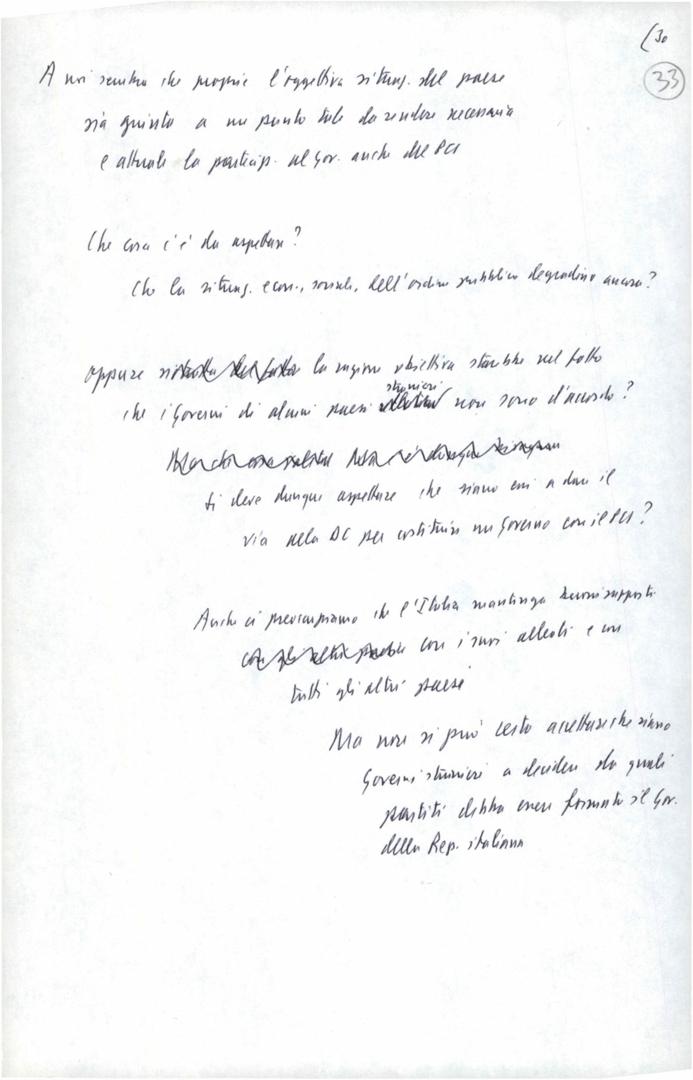 (30
33
A noi sembra che proprio l'oggettiva situaz. del paese
sia giunta a un punto tale da rendere necessaria
e attuale la particip. al Gov. anche del PCI
Che cosa c'è da aspettare?
Che la situaz. econ., sociale, dell'ordine pubblico degradino ancora?
oppure la ragione obiettiva starebbe nel fatto
stranieri
che i Governi di alcuni paesi non sono d'accordo?
Si deve dunque aspettare che siano essi a dare il
via alla DC per costituire un Governo con il PCI?
Anche ci preoccupiamo che l'Italia mantenga buoni rapporti
con i suoi alleati e con
tutti gli altri paesi
Ma non si può certo accettare che siano
Governi stranieri a decidere da quali
partiti debba essere formato il Gov.
della Rep. italiana